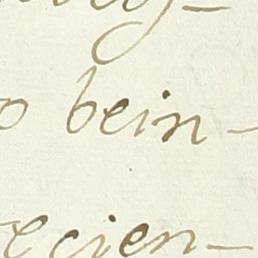 o bein-
ecien-